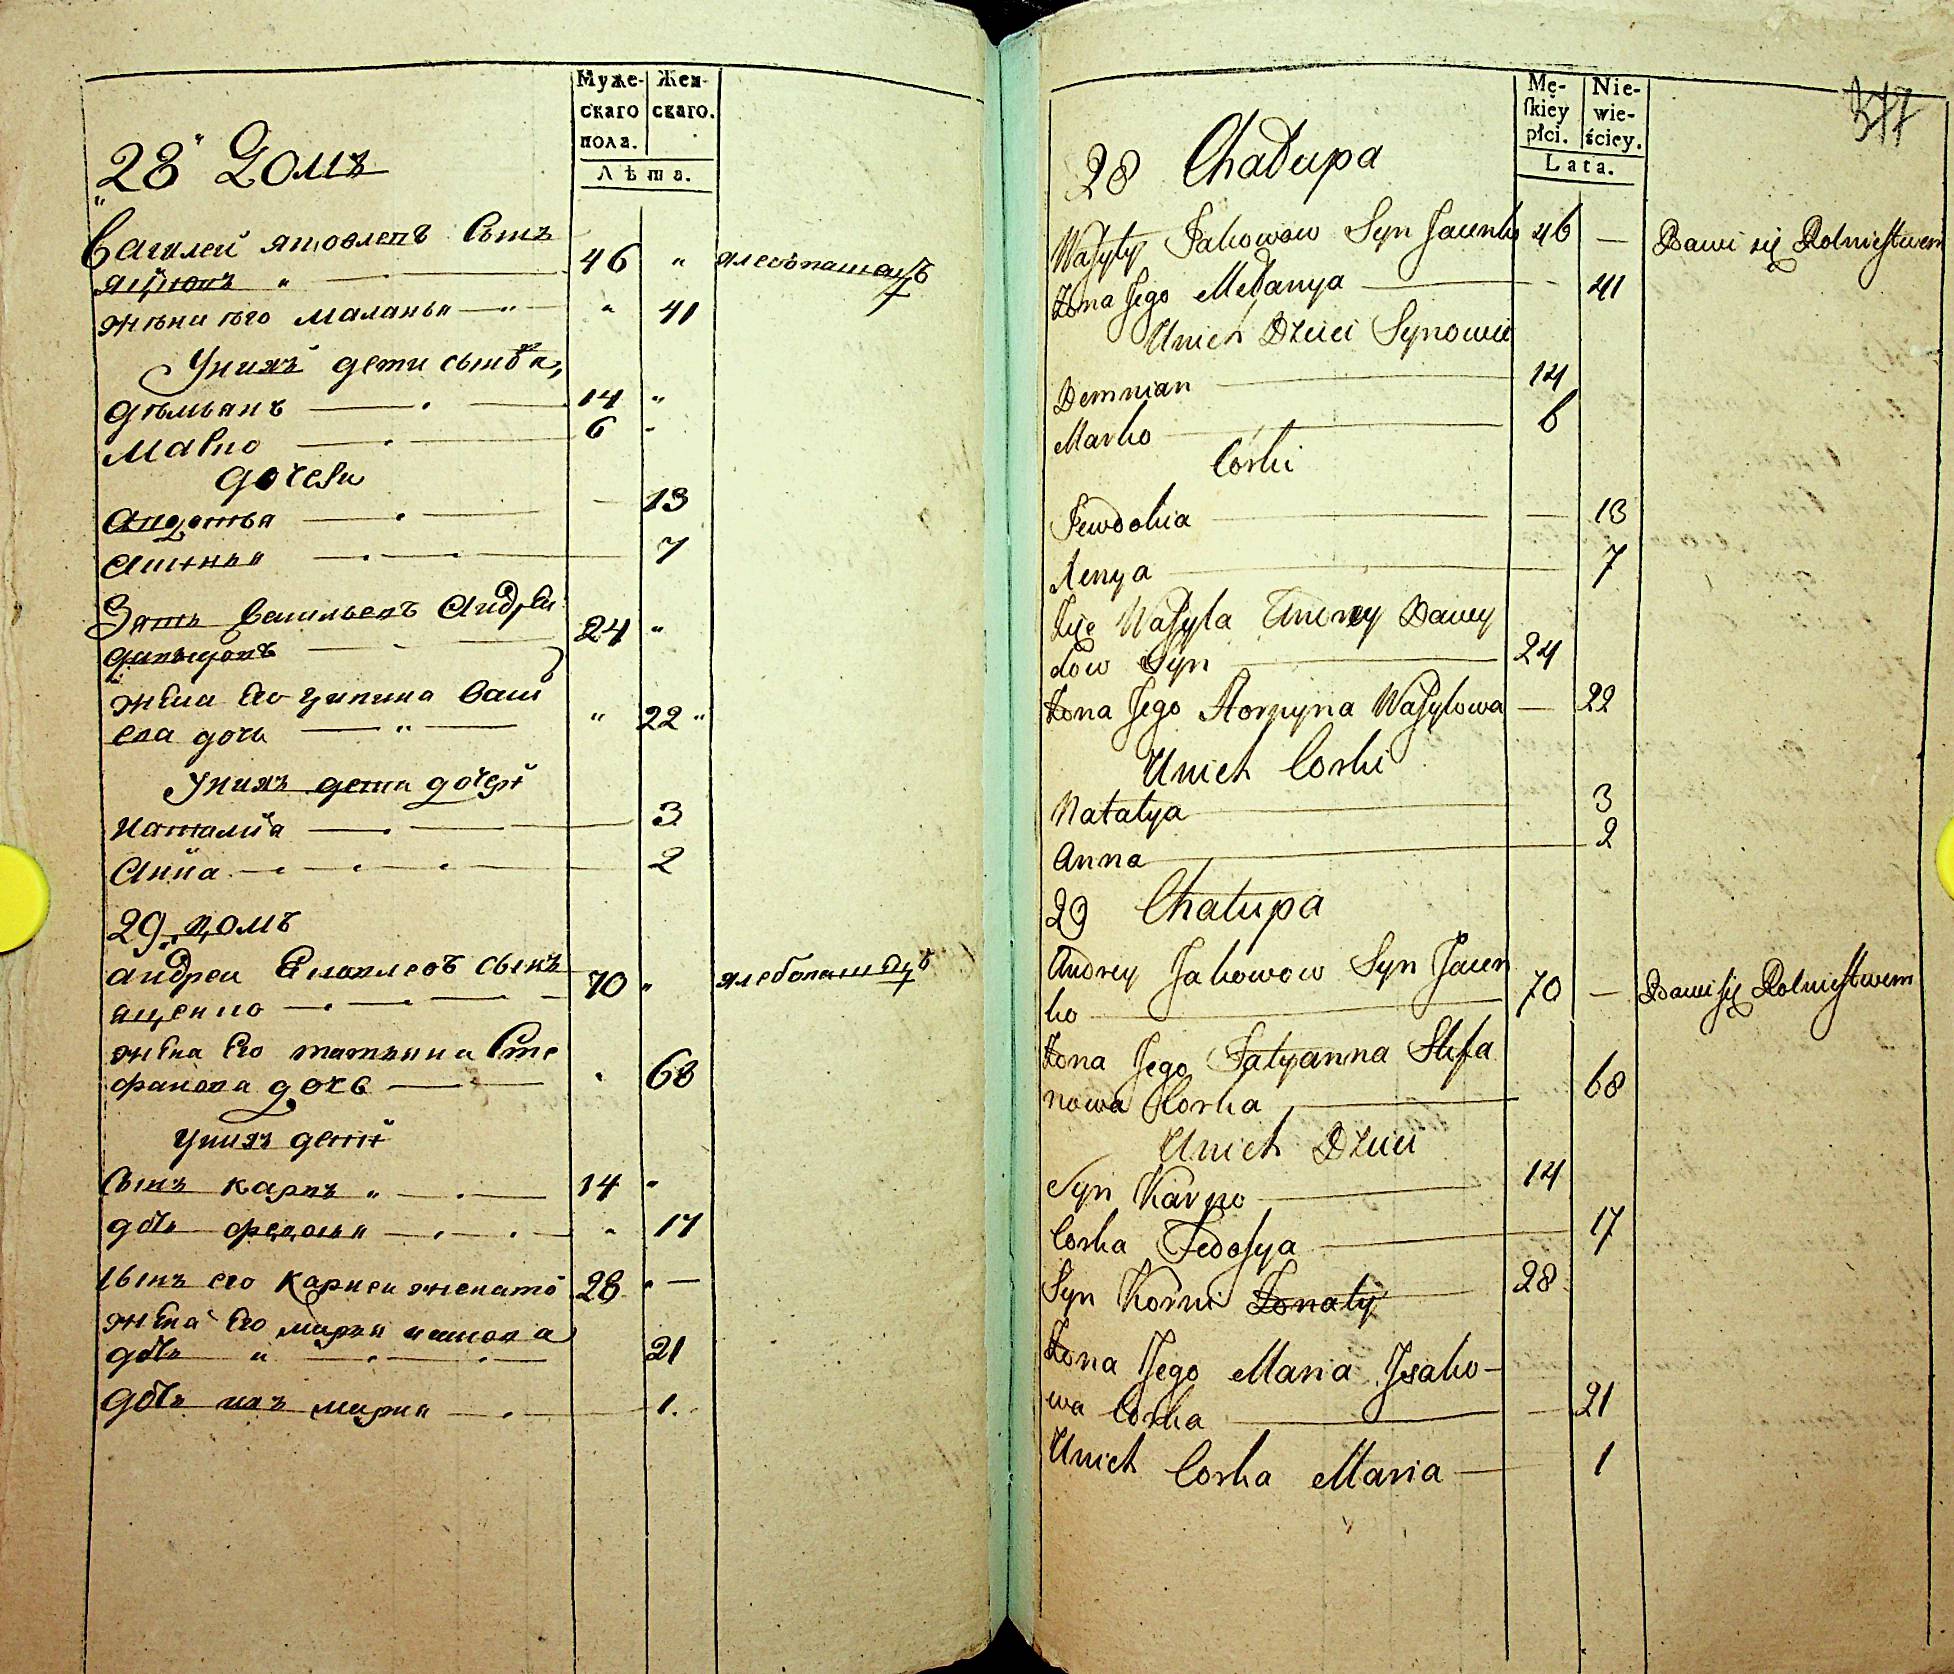 Муже- Жен-
скаго скаго.
пола.
Лѣта.
28 Домъ
Василей яковлевъ Сынъ
яцюкъ 46 " хлебопашецъ
жѣна его маланья " 41
Униxъ дети сынова,
дѣмьянъ 14 "
Марко 6
дочери
Авдотья 13
Аксинья 7
Зять васильевъ Андрей
давыдовъ 24 "
жена Его Ирина васи
ева дочь " 22 "
Унихъ дети дочери
Наталия 3
Анна 2
29 домъ
андреи Яковлевъ сынъ 70 " хлебопашецъ
яценко
жена Его татьяна Сте
фанова дочь 68
Унихъ дети
Сынъ карпъ " 14 "
дочь федосья 17
сынъ его Карнеи женатой 28
жена Его марья исакова
дочь " 21
дочь ихъ мария 1.
377
Mę- Nie-
ſkiey wie-
płci. ściey.
Lata.
28 Chałupa
Waſyly Jakowow Syn Jacenko 46 — Bawi się Rolnictwem
Żona Jego Mełanya 41
Unich Dzieci Synowie
Demnian 14
Marko 6
Corki
Fewdokia 13
Xenya 7
Zięć Waſyla Andrey Dawy
dow Syn 24
Żona Jego Horpyna Waſylowa — 22
Unich Corki
Natalya 3
Anna 2
29 Chałupa
Andrey Jakowow Syn Jacen
ko 70 — Bawi się Rolnictwem
Żona Jego Tatyanna Stefa
nowa Corka 68
Unich Dzieci
Syn Karpo 14
Corka Fedoſya 17
Syn Korni Żonaty 28
Żona Jego Maria Jsako-
wa Corka 21
Unich Corka Maria 1